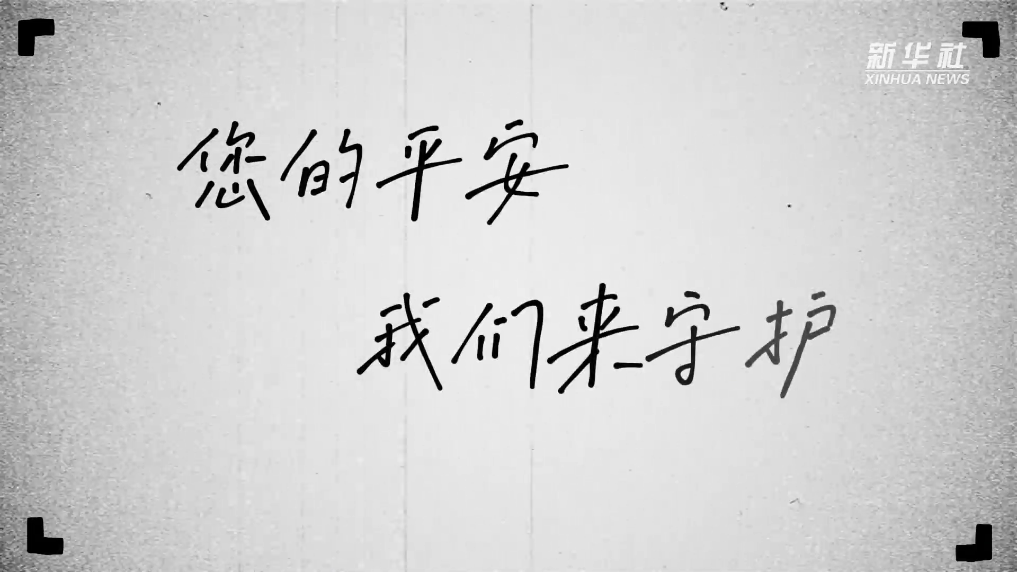 新华社
XINHUA NEWS
您的平安
我们来守护